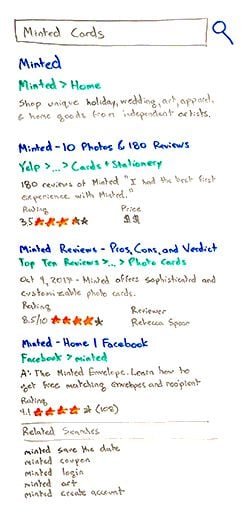 Minted Cards
Minted
Minted > Home
Shop unique holiday, wedding, art, apparel,
& home goods from independent artists.
Minted - 10 Photos & 180 Reviews
Yelp > ... > Cards + Stationery
180 reviews of Minted "I had the best first
experience with Minted."
Rating Price
3.5 $$
Minted Reviews - Pros, Cons, and Verdict
Top Ten Reviews > ... > Photo Cards
Oct 9, 2017 - Minted offers sophisticated and
customizable photo cards.
Rating Reviewer
8.5/10 Rebecca Spear
Minted - Home | Facebook
Facebook > minted
A: The Minted Envelope. Learn how to
get free matching envelopes and recipient
Rating
4.1 (108)
Related Searches
minted save the date
minted coupon
minted login
minted art
minted create account